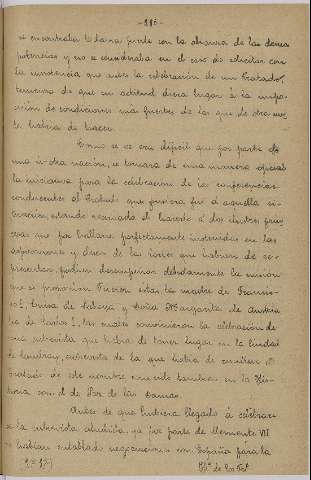 -116-
se encontraba todavía fuerte con la alianza de las demás
potencias y no se consideraba en el caso de solicitar con
la insistencia que antes la celebración de un tratado,
temerosa de que su actitud diera lugar á la impo-
sición de condiciones más fuertes de las que de otra suer-
te habría de hacer.
Como se ve era difícil que por parte de
una ú otra nación, se tomara de una manera oficial
la iniciativa para la celebración de la conferencias
conducentes al Tratado que pusiera fin á aquella si-
tuación, estando reservado el hacerlo á dos ilustres prin-
cesas que por hallarse perfectamente instruidas en las
aspiraciones y deseos de las Cortes que habían de re-
presentar, podían desempeñar debidamente la misión
que se proponían. Fueron estas la madre de Francis-
co I, Luisa de Saboya y doña Margarita de Austria
tía de Carlos I, las cuales convinieron la celebración de
una entrevista que había de tener lugar en la ciudad
de Cambray, entrevista de la que había de resultar el
tratado de este nombre conocido también en la His-
toria con el de Paz de las Damas.
Antes de que hubiera llegado á celebrar-
se la entrevista aludida, ya por parte de Clemente VII
se habían entablado negociaciones con España para la